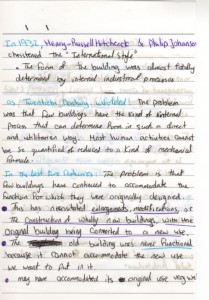 In 1932, Henry-Russell Hitchcock & Philip Johnson
christened the "International Style"
• The form of the building was almost totally
determined by internal industrial processes
as Twentieth Century Unfolded The problem
was that few buildings have the kind of internal
process that can determine form in such a direct
and utilitarian way. Most human activities cannot
be so quantified & reduced to a kind of mechanical
formula.
In the last Five Centuries The problem is that
few buildings have continued to accommodate the
function for which they were originally designed.
This has necessitated enlargements, modifications, or
the Construction of wholly new buildings, with the
original building being converted to a new use.
The old building was never Functional
because it cannot accommodate the new use
we want to put in it.
may have accommodated its original use very well